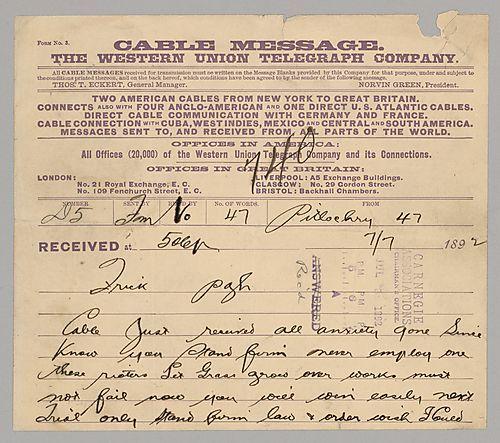 Form No. 3.
CABLE MESSAGE.
THE WESTERN UNION TELEGRAPH COMPANY.
All CABLE MESSAGES received for transmission must be written on the Message Blanks provided by this Company for that purpose, under and subject to
the conditions printed thereon, and on the back hereof, which conditions have been agreed to by the sender of the following message.
THOS. T. ECKERT, General Manager. NORVIN GREEN, President.
TWO AMERICAN CABLES FROM NEW YORK TO GREAT BRITAIN.
CONNECTS ALSO WITH FOUR ANGLO-AMERICAN AND ONE DIRECT U.S. ATLANTIC CABLES.
DIRECT CABLE COMMUNICATION WITH GERMANY AND FRANCE.
CABLE CONNECTION WITH CUBA, WEST INDIES, MEXICO AND CENTRAL AND SOUTH AMERICA.
MESSAGES SENT TO, AND RECEIVED FROM, ALL PARTS OF THE WORLD.
OFFICES IN AMERICA:
All Offices (20,000) of the Western Union Telegraph Company and its Connections.
OFFICES IN GREAT BRITAIN:
LONDON: LIVERPOOL: A5 Exchange Buildings.
No. 21 Royal Exchange, E. C. GLASGOW: No. 29 Gordon Street.
No. 109 Fenchurch Street, E. C. BRISTOL: Backhall Chambers.
740
NUMBER SENT BY REC'D BY No. OF WORDS. FROM
D5 47 Pitlochry 47
RECEIVED at 7/7 1892
Frick Pgh
CARNEGIE
ASSOCIATIONS
CHAIRMAN'S OFFICE.
JUL 1892
ANSWERED
Rec'd
Cable just received all anxiety gone since
know you stand firm never employ one
these rioters Let Grass grow over works must
not fail now you will win easily next
trial only stand firm law & order wish I could